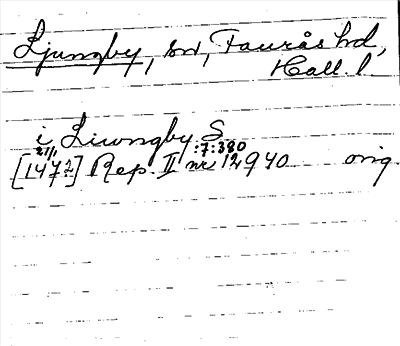 Ljungby, sn, Faurås hd,
Hall. l.
i Liwngby S
21/1 :7:380
[1472] Rep. II nr 12940 orig.